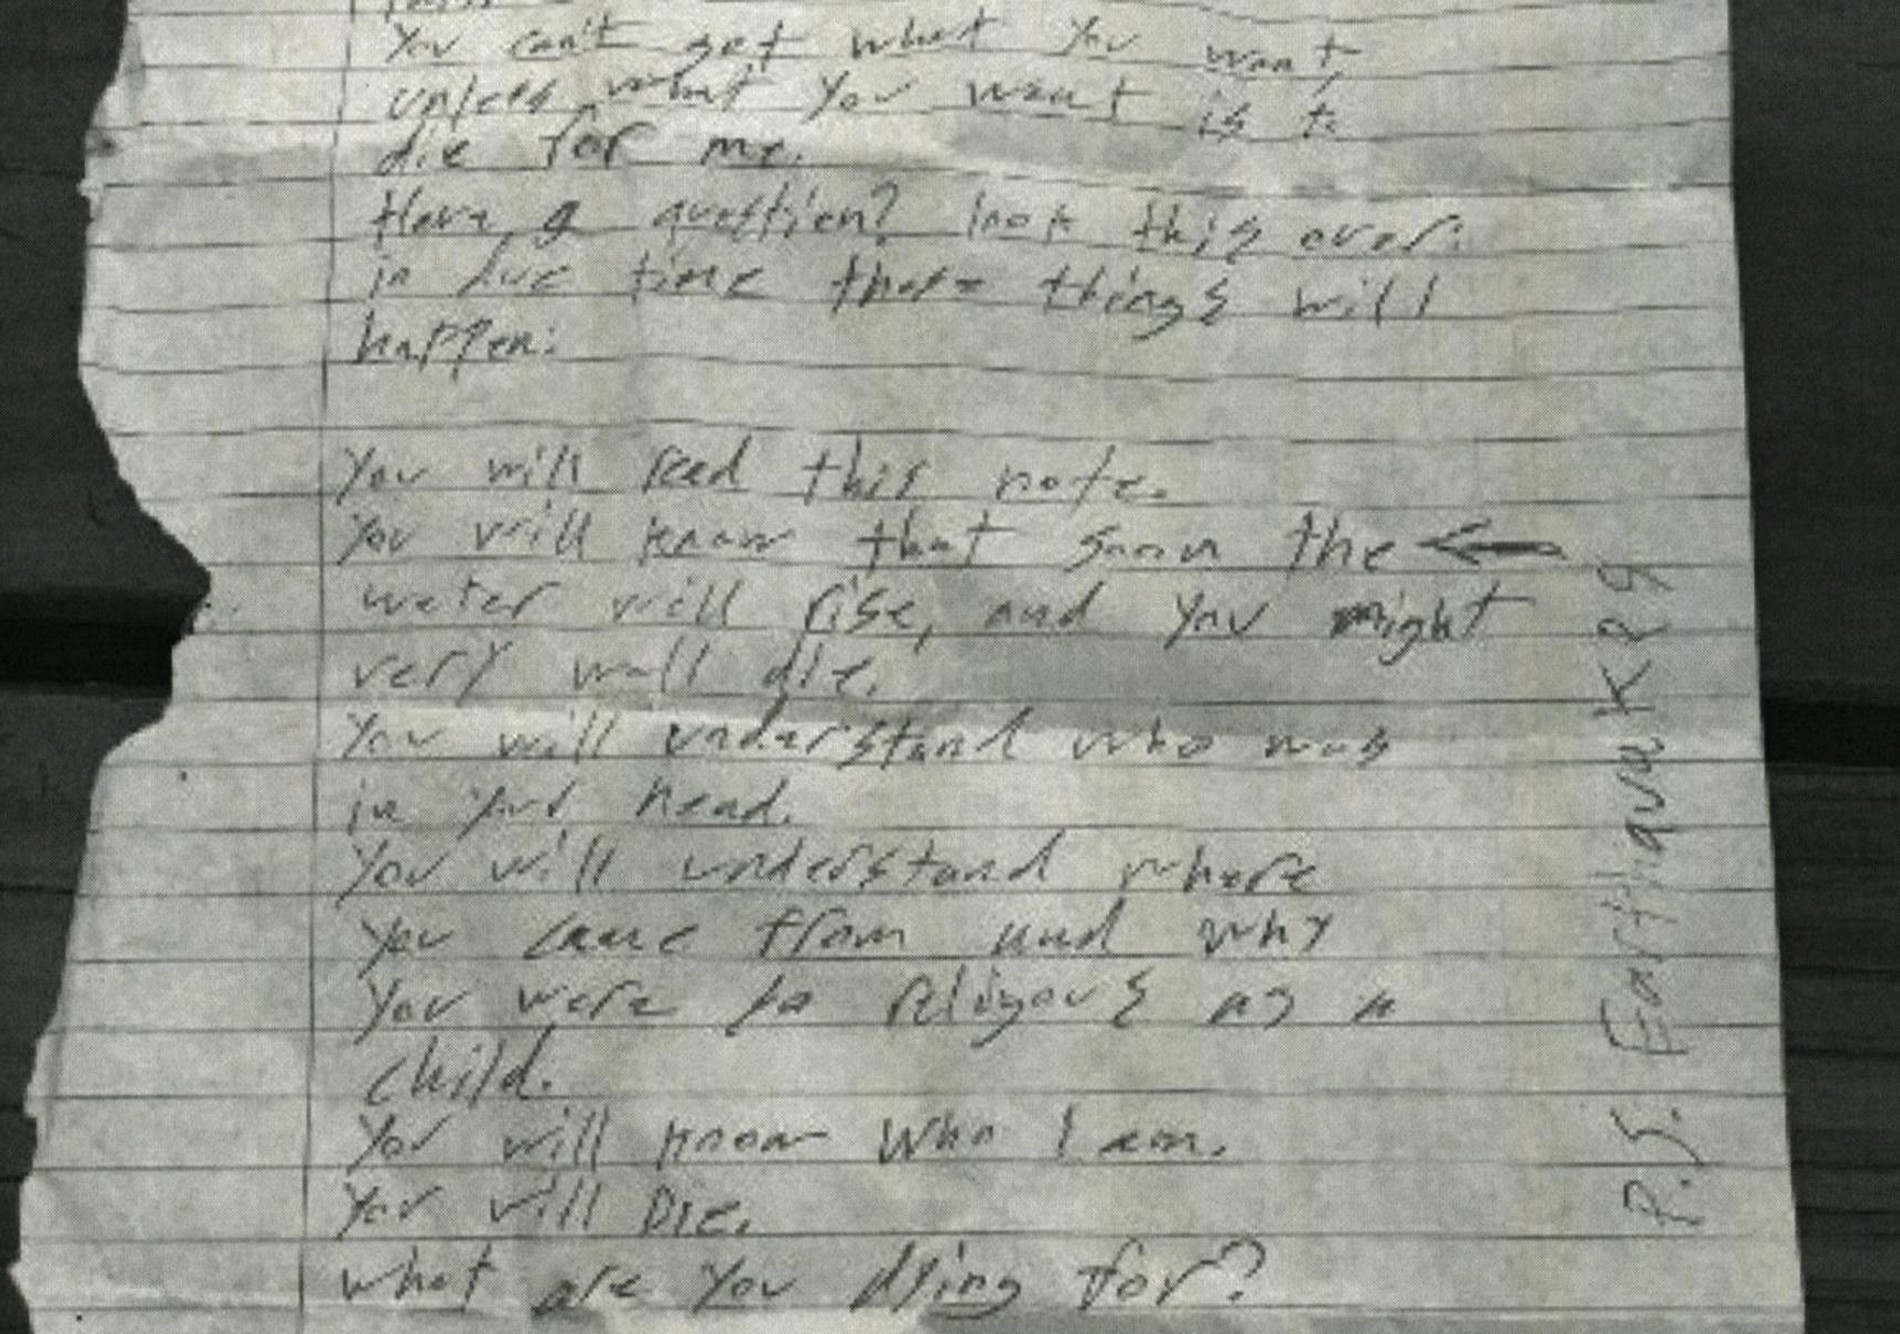 You can't get what you want,
unless what you want is to
die for me.
Have a question? look this over.
in due time these things will
happen:
You will read this note.
You will know that soon the ←
water will rise, and you might
very well die.
You will understand who was
in your head.
You will understand where
you came from and why
You were so religous as a
child.
You will know Who I am.
You will DIE.
what are you dying for?
P.S. Earthquak